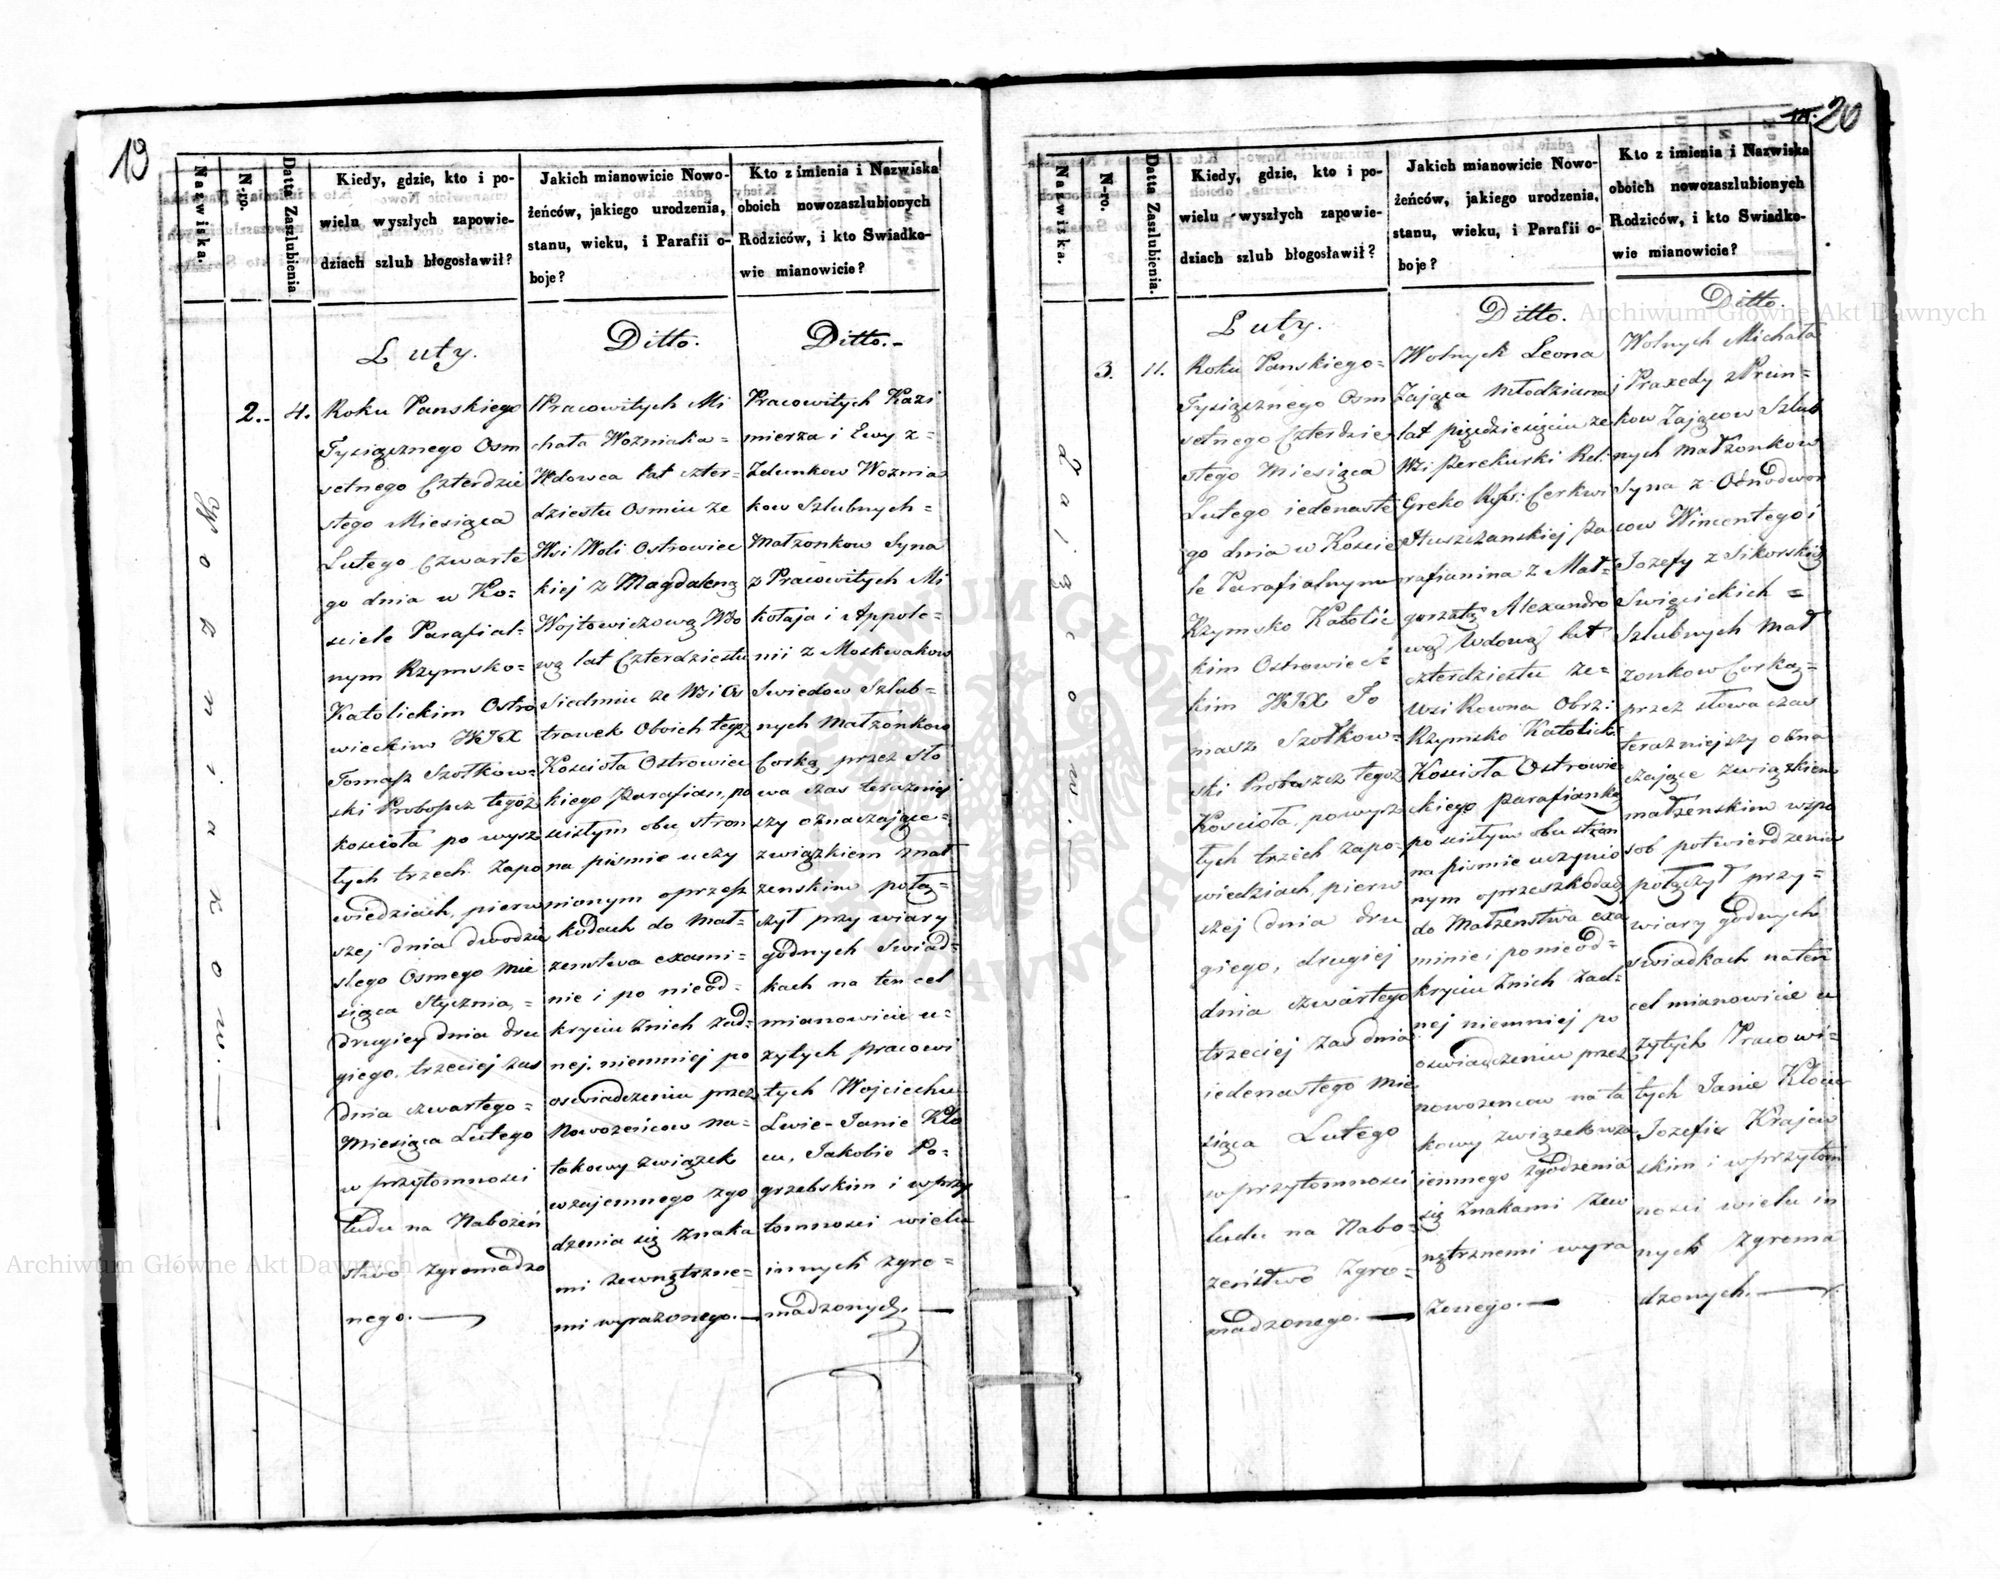 19
Nazwiska.
N-ro.
Datta Zaszlubienia.
Kiedy, gdzie, kto i po-
wielu wyszłych zapowie-
dziach szlub błogosławił?
Jakich mianowicie Nowo-
żeńców, jakiego urodzenia,
stanu, wieku, i Parafii o-
boje?
Kto z imienia i Nazwiska
oboich nowozaszlubionych
Rodziców, i kto Swiadko-
wie mianowicie?
2.
4.
Luty.
Roku Panskiego
Tysiącznego Osm
setnego Czterdzie
stego Miesiąca
Lutego Czwarte
go dnia w Ko=
sciele Parafial=
nym Rzymsko=
Katolickim Ostro
wieckim WJX
Tomasz Szołkow=
ski Proboszcz tegoż
koscioła po wysz
łych trzech Zapo
wiedziach, pierw
szej dnia dwodzie
stego Osmego Mie
siąca Stycznia, =
drugiey dnia dru
giego, trzeciej zas
dnia czwartego =
Miesiąca Lutego
w przytomnosci
ludu na Nabożeń
stwo zgromadzo
nego.
Ditto.
Pracowitych Mi
chała Wozniaka =
Wdowca lat czter=
dziestu Osmiu ze
Wsi Woli Ostrowiec
kiej z Magdaleną
Wojtowiczową Wdo
wą lat Czterdziestu
Siedmiu ze Wsi Os
trowek Oboich tegoż
Koscioła Ostrowiec
kiego Parafian, po
scisłym obu stron
na pismie uczy
nionym oprzesz
kodach do Mał=
zenstwa exami=
nie i po nieod=
kryciu żnich żad=
nej, niemniej po
oswiadczeniu przez
Nowożeńcow na=
takowy związek
wzajemnego zgo
dzenia się Znaka
mi zewnętrzne=
mi wyrażonego.
Ditto.
Pracowitych Kazi
mierza i Ewy z =
Zdunkow Woznia
kow Szlubnych =
Małzonkow Syna
z Pracowitych Mi
kołaja i Appolo=
nii z Moskwakow
Swiedow Szlub=
nych Małzonkow
Corką, przez sło
wa czas terazniej
szy oznaczające=
związkiem mał
zenskim połą=
czył przy wiary
godnych Swiad=
kach na ten cel
mianowicie u=
żytych Pracowi
tych Wojciechu
Lwie - Janie Kło
cu, Jakobie Po=
grzebskim i w przy
tomnosci wielu
innych zgro=
madzonych.
20
Nazwiska.
N-ro.
Datta Zaszlubienia.
Kiedy, gdzie, kto i po-
wielu wyszłych zapowie-
dziach szlub błogosławił?
Jakich mianowicie Nowo-
żeńców, jakiego urodzenia,
stanu, wieku, i Parafii o-
boje?
Kto z imienia i Nazwiska
oboich nowozaszlubionych
Rodziców, i kto Swiadko-
wie mianowicie?
3.
11.
Luty.
Roku Panskiego =
Tysiącznego Osm
setnego Czterdzie
stego Miesiąca
Lutego iedenaste
go dnia w Koscie
le Parafialnym
Rzymsko Katolic
kim Ostrowiec=
kim WJX To
masz Szołkow=
ski Proboszcz tegoż
Koscioła, powysz
łych trzech zapo=
wiedziach, pierw
szej dnia dru
giego, drugiej
dnia czwartego
trzeciej zaś dnia
iedenastego Mie
siąca Lutego
w przytomnosci
ludu na Nabo=
żeństwo zgro=
madzonego.
Ditto.
Wolnych Leona
Zająca Młodziana
lat pięcdziesięciu ze
Wsi Perekurski Rel:
Greko Cerkwi
Hłuszczanskiej Pa
rafianina z Mał=
gorzatą Alexandro
wą Wdową lat
czterdziestu ze=
Wsi Rowna Obrz:
Rzymsko Katolick:
Kosciola Ostrowie
ckiego Parafianką
po scisłym obu stron
na pismie uczynio
nym oprzeszkodach
do Małzenstwa exa
minie i ponieod=
kryciu Żnich Żad=
nej niemniej po
oswiadczeniu przez
nowożencow na ta
kowy związek wza
iemnego zgodzenia
się Znakami zew
nętrznemi wyra
żonego.
Ditto.
Wolnych Michała
i Praxedy z Prun=
kow Zającow Szlub
nych Małzonkow
Syna z Odnodwor
cow Wincentego i
Jozefy z Sikorskich
Swięcickich =
Szlubnych Mał
zonkow Corką=
przez słowa czas
terazniejszy ozna
czające związkiem
małzenskim wspo
sob potwierdzenia
połączył przy=
wiary godnych
swiadkach na ten
cel mianowicie u
żytych Pracowi=
tych Janie Kłocie
Jozefie Krajew
skim i wprzytom
nosci wielu in
nych zgroma
dzonych.
Archiwum Główne Akt Dawnych
Archiwum Główne Akt Dawnych
ARCHIWUM GŁÓWNE AKT DAWNYCH